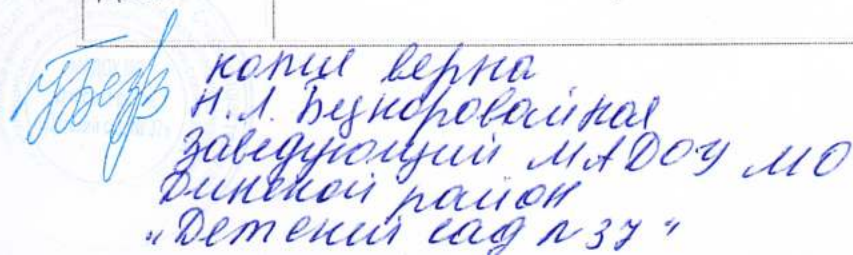 копия верна
Н.Л. Безкоровайная
заведующий МАДОУ МО
Динской район
"Детский сад N 37"